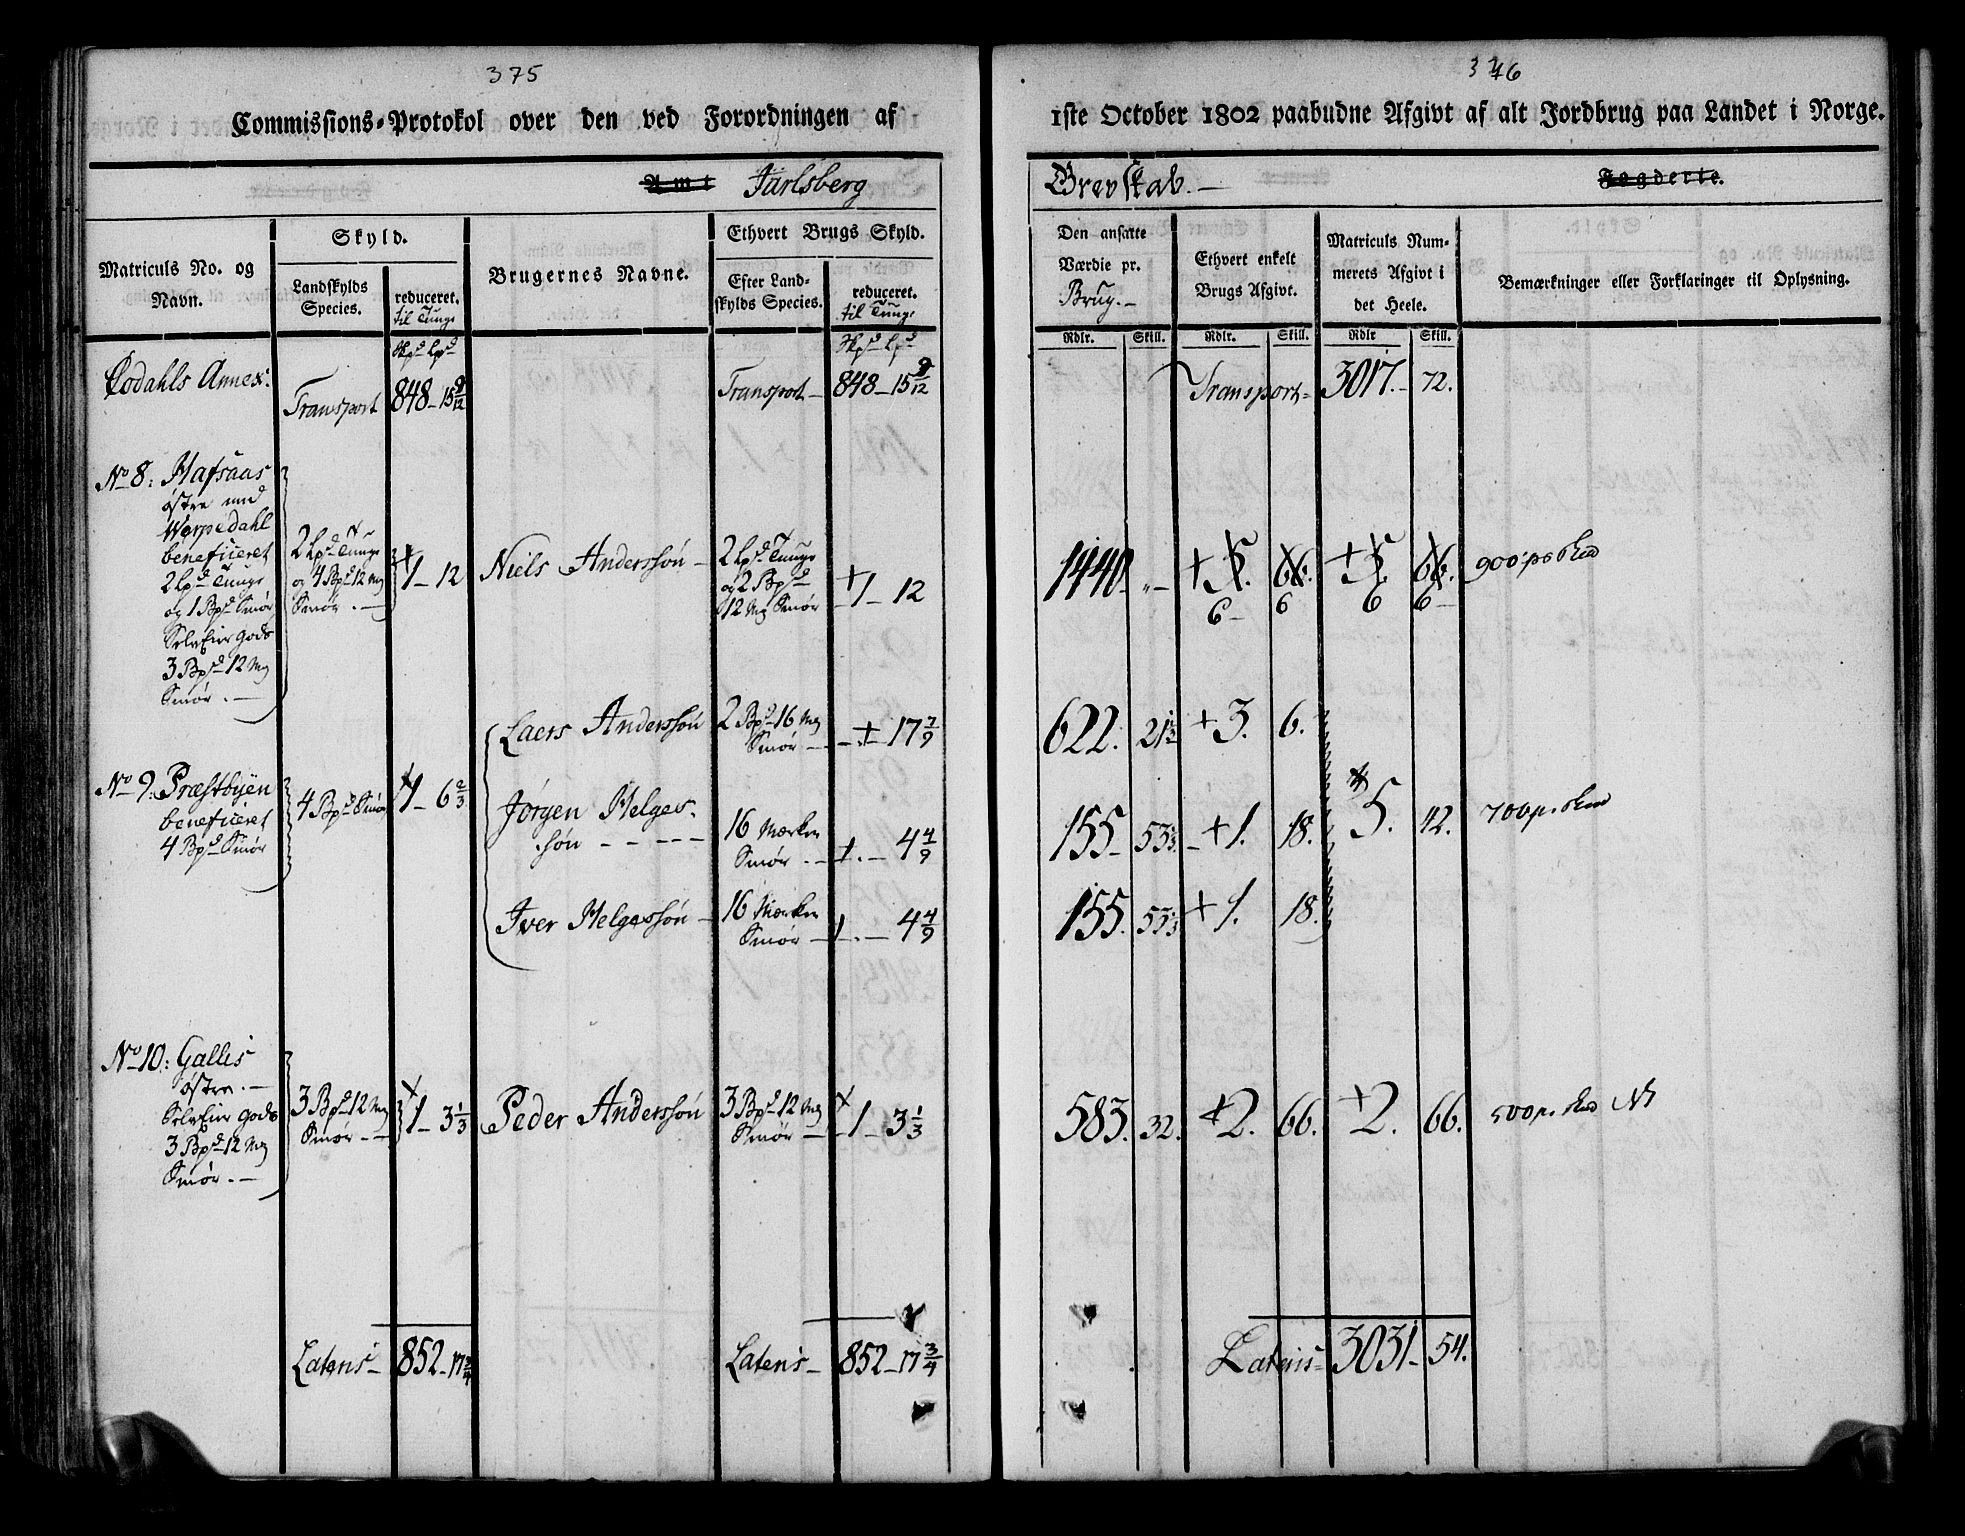 375
Commissions-Protokol over den ved Forordningen af
Amt Jarlsberg
Matriculs No. og Navn.
Skyld.
Landskylds Species.
reduceret. til Tunge
Brugernes Navne.
Ethvert Brugs Skyld.
Efter Landskylds Species.
reduceret. til Tunge
Skpd Lpd
Skpd Lpd
Annex:
Transport 848 - 15 9/12
Transport - 848 - 15 9/12
No 8: Hafsaas
østre med
Werpedahl
beneficeret
2 Lpd Tunge
og 1 Bpd Smør
SelvEier Gods
3 Bpd 12 Mg
Smør. -
2 Lpd Tunge
og 4 Bpd 12 Mg
Smør. -
+1 - 12
Niels Anderssøn -
2 Lpd Tunge
og 2 Bpd
12 Mg Smør
+1 - 12
No 9: Præstbyen
beneficeret
4 Bpd Smør
4 Bpd Smør
+1 - 6 2/3
Laers Anderssøn
2 Bpd 16 Mg
Smør -
+ - 17 7/9
Jørgen Helges-
søn - - - - -
16 Mærker
Smør . -
+ . - 4 4/9
Iver Helgessøn -
16 Mærker
Smør -
+ . - 4 4/9
No 10: Galles
østre. -
SelvEier Gods
3 Bpd 12 Mg
Smør. -
3 Bpd 12 Mg
Smør - -
+1 - 3 1/3
Peder Anderssøn
3 Bpd 12 Mg
Smør -
+1 - 3 1/3
Latens - 852 - 17 3/4
Latens - 852 - 17 3/4
376
1ste October 1802 paabudne Afgivt af alt Jordbrug paa Landet i Norge.
Grevskab. -
Fogderie.
Den ansatte Værdie pr. Brug. -
Ethvert enkelt Brugs Afgivt.
Matriculs Nummerets Afgivt i det Heele.
Bemærkninger eller Forklaringer til Oplysning.
Rdlr. Skill. Rdlr. Skill. Rdlr Skill.
Transport - 3017. - 72.
1440 - " - +5. 66. +5. 66.
6 - 6 6 6 -
622. 21 1/3 +3. 6.
155 - 53 1/3 - +1. 18. +5. 42.
155. 53 1/3 +1. 18.
583. 32. +2. 66. +2. 66.
Latens - 3031 - 54.